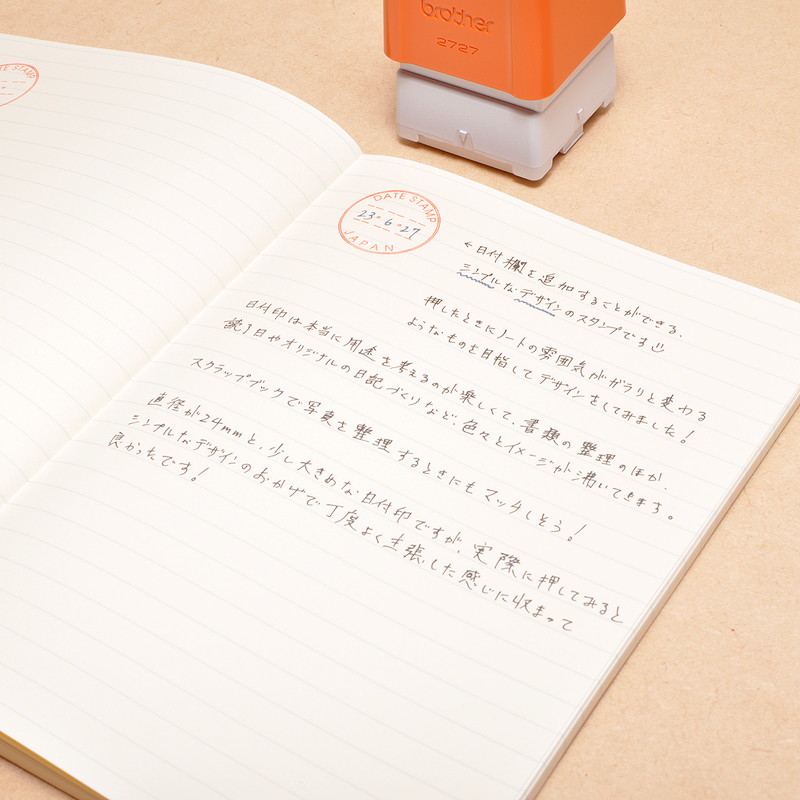 brother
2727
TE STAMP
DATE STAMP
23・6・27
JAPAN
←日付欄を追加することができる、
シンプルなデザインのスタンプです
押したときにノートの雰囲気がガラリと変わる
ようなものを目指してデザインをしてみました!
日付印は本当に用途を考えるのが楽しくて、書類の整理のほか、
読了日やオリジナルの日記づくりなど、色々とイメージが沸いてきます。
スクラップブックで写真を整理するときにもマッチしそう!
直径が24mmと、少し大きめな日付印ですが、実際に押してみると
シンプルなデザインのおかげで丁度よく主張した感じに収まって
良かったです!